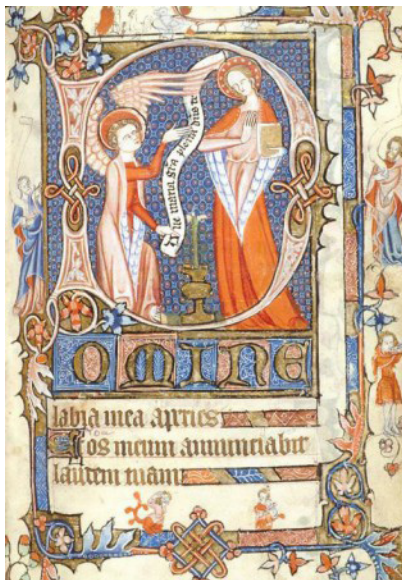 Aue maria gr̃a plena dñs te
DOMINE
labia mea apries
Et os meum anunciabit
laudem tuam